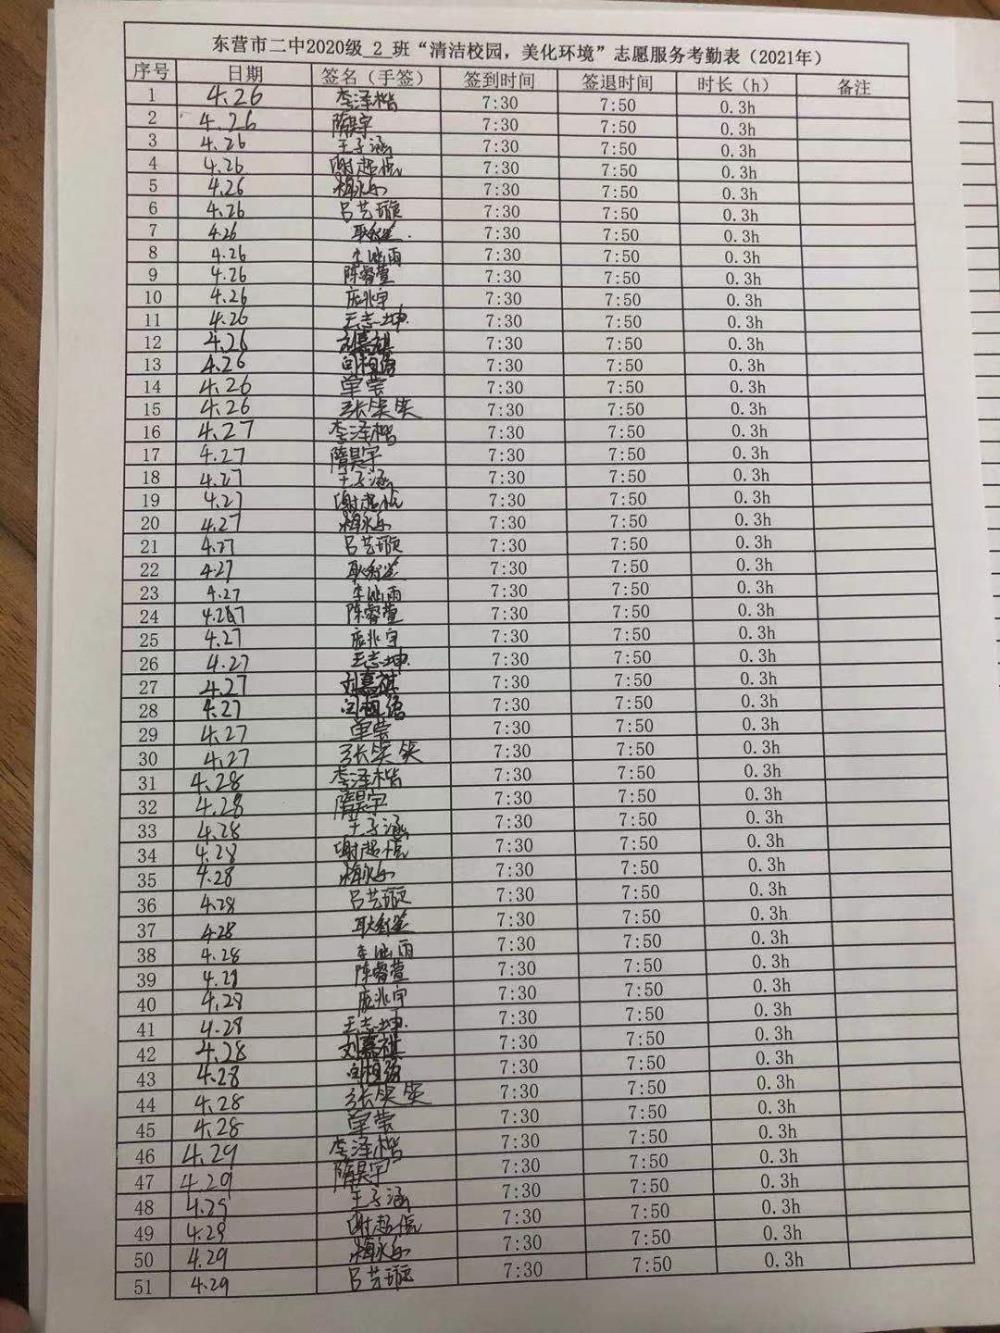 东营市二中2020级 2 班“清洁校园，美化环境”志愿服务考勤表（2021年）
序号 日期 签名（手签） 签到时间 签退时间 时长（h） 备注
1 4.26 李泽楷 7:30 7:50 0.3h
2 4.26 隋昊宇 7:30 7:50 0.3h
3 4.26 王子涵 7:30 7:50 0.3h
4 4.26 谢超 7:30 7:50 0.3h
5 4.26 7:30 7:50 0.3h
6 4.26 吕芸璇 7:30 7:50 0.3h
7 4.26 7:30 7:50 0.3h
8 4.26 7:30 7:50 0.3h
9 4.26 陈睿萱 7:30 7:50 0.3h
10 4.26 庞兆宇 7:30 7:50 0.3h
11 4.26 王志坤 7:30 7:50 0.3h
12 4.26 刘嘉祺 7:30 7:50 0.3h
13 4.26 7:30 7:50 0.3h
14 4.26 单莹 7:30 7:50 0.3h
15 4.26 张笑笑 7:30 7:50 0.3h
16 4.27 李泽楷 7:30 7:50 0.3h
17 4.27 隋昊宇 7:30 7:50 0.3h
18 4.27 王子涵 7:30 7:50 0.3h
19 4.27 谢超 7:30 7:50 0.3h
20 4.27 7:30 7:50 0.3h
21 4.27 吕芸璇 7:30 7:50 0.3h
22 4.27 7:30 7:50 0.3h
23 4.27 7:30 7:50 0.3h
24 4.27 陈睿萱 7:30 7:50 0.3h
25 4.27 庞兆宇 7:30 7:50 0.3h
26 4.27 王志坤 7:30 7:50 0.3h
27 4.27 刘嘉祺 7:30 7:50 0.3h
28 4.27 7:30 7:50 0.3h
29 4.27 单莹 7:30 7:50 0.3h
30 4.27 张笑笑 7:30 7:50 0.3h
31 4.28 李泽楷 7:30 7:50 0.3h
32 4.28 隋昊宇 7:30 7:50 0.3h
33 4.28 王子涵 7:30 7:50 0.3h
34 4.28 谢超 7:30 7:50 0.3h
35 4.28 7:30 7:50 0.3h
36 4.28 吕芸璇 7:30 7:50 0.3h
37 4.28 7:30 7:50 0.3h
38 4.28 7:30 7:50 0.3h
39 4.28 陈睿萱 7:30 7:50 0.3h
40 4.28 庞兆宇 7:30 7:50 0.3h
41 4.28 王志坤 7:30 7:50 0.3h
42 4.28 刘嘉祺 7:30 7:50 0.3h
43 4.28 7:30 7:50 0.3h
44 4.28 张笑笑 7:30 7:50 0.3h
45 4.28 单莹 7:30 7:50 0.3h
46 4.29 李泽楷 7:30 7:50 0.3h
47 4.29 隋昊宇 7:30 7:50 0.3h
48 4.29 王子涵 7:30 7:50 0.3h
49 4.29 谢超 7:30 7:50 0.3h
50 4.29 7:30 7:50 0.3h
51 4.29 吕芸璇 7:30 7:50 0.3h